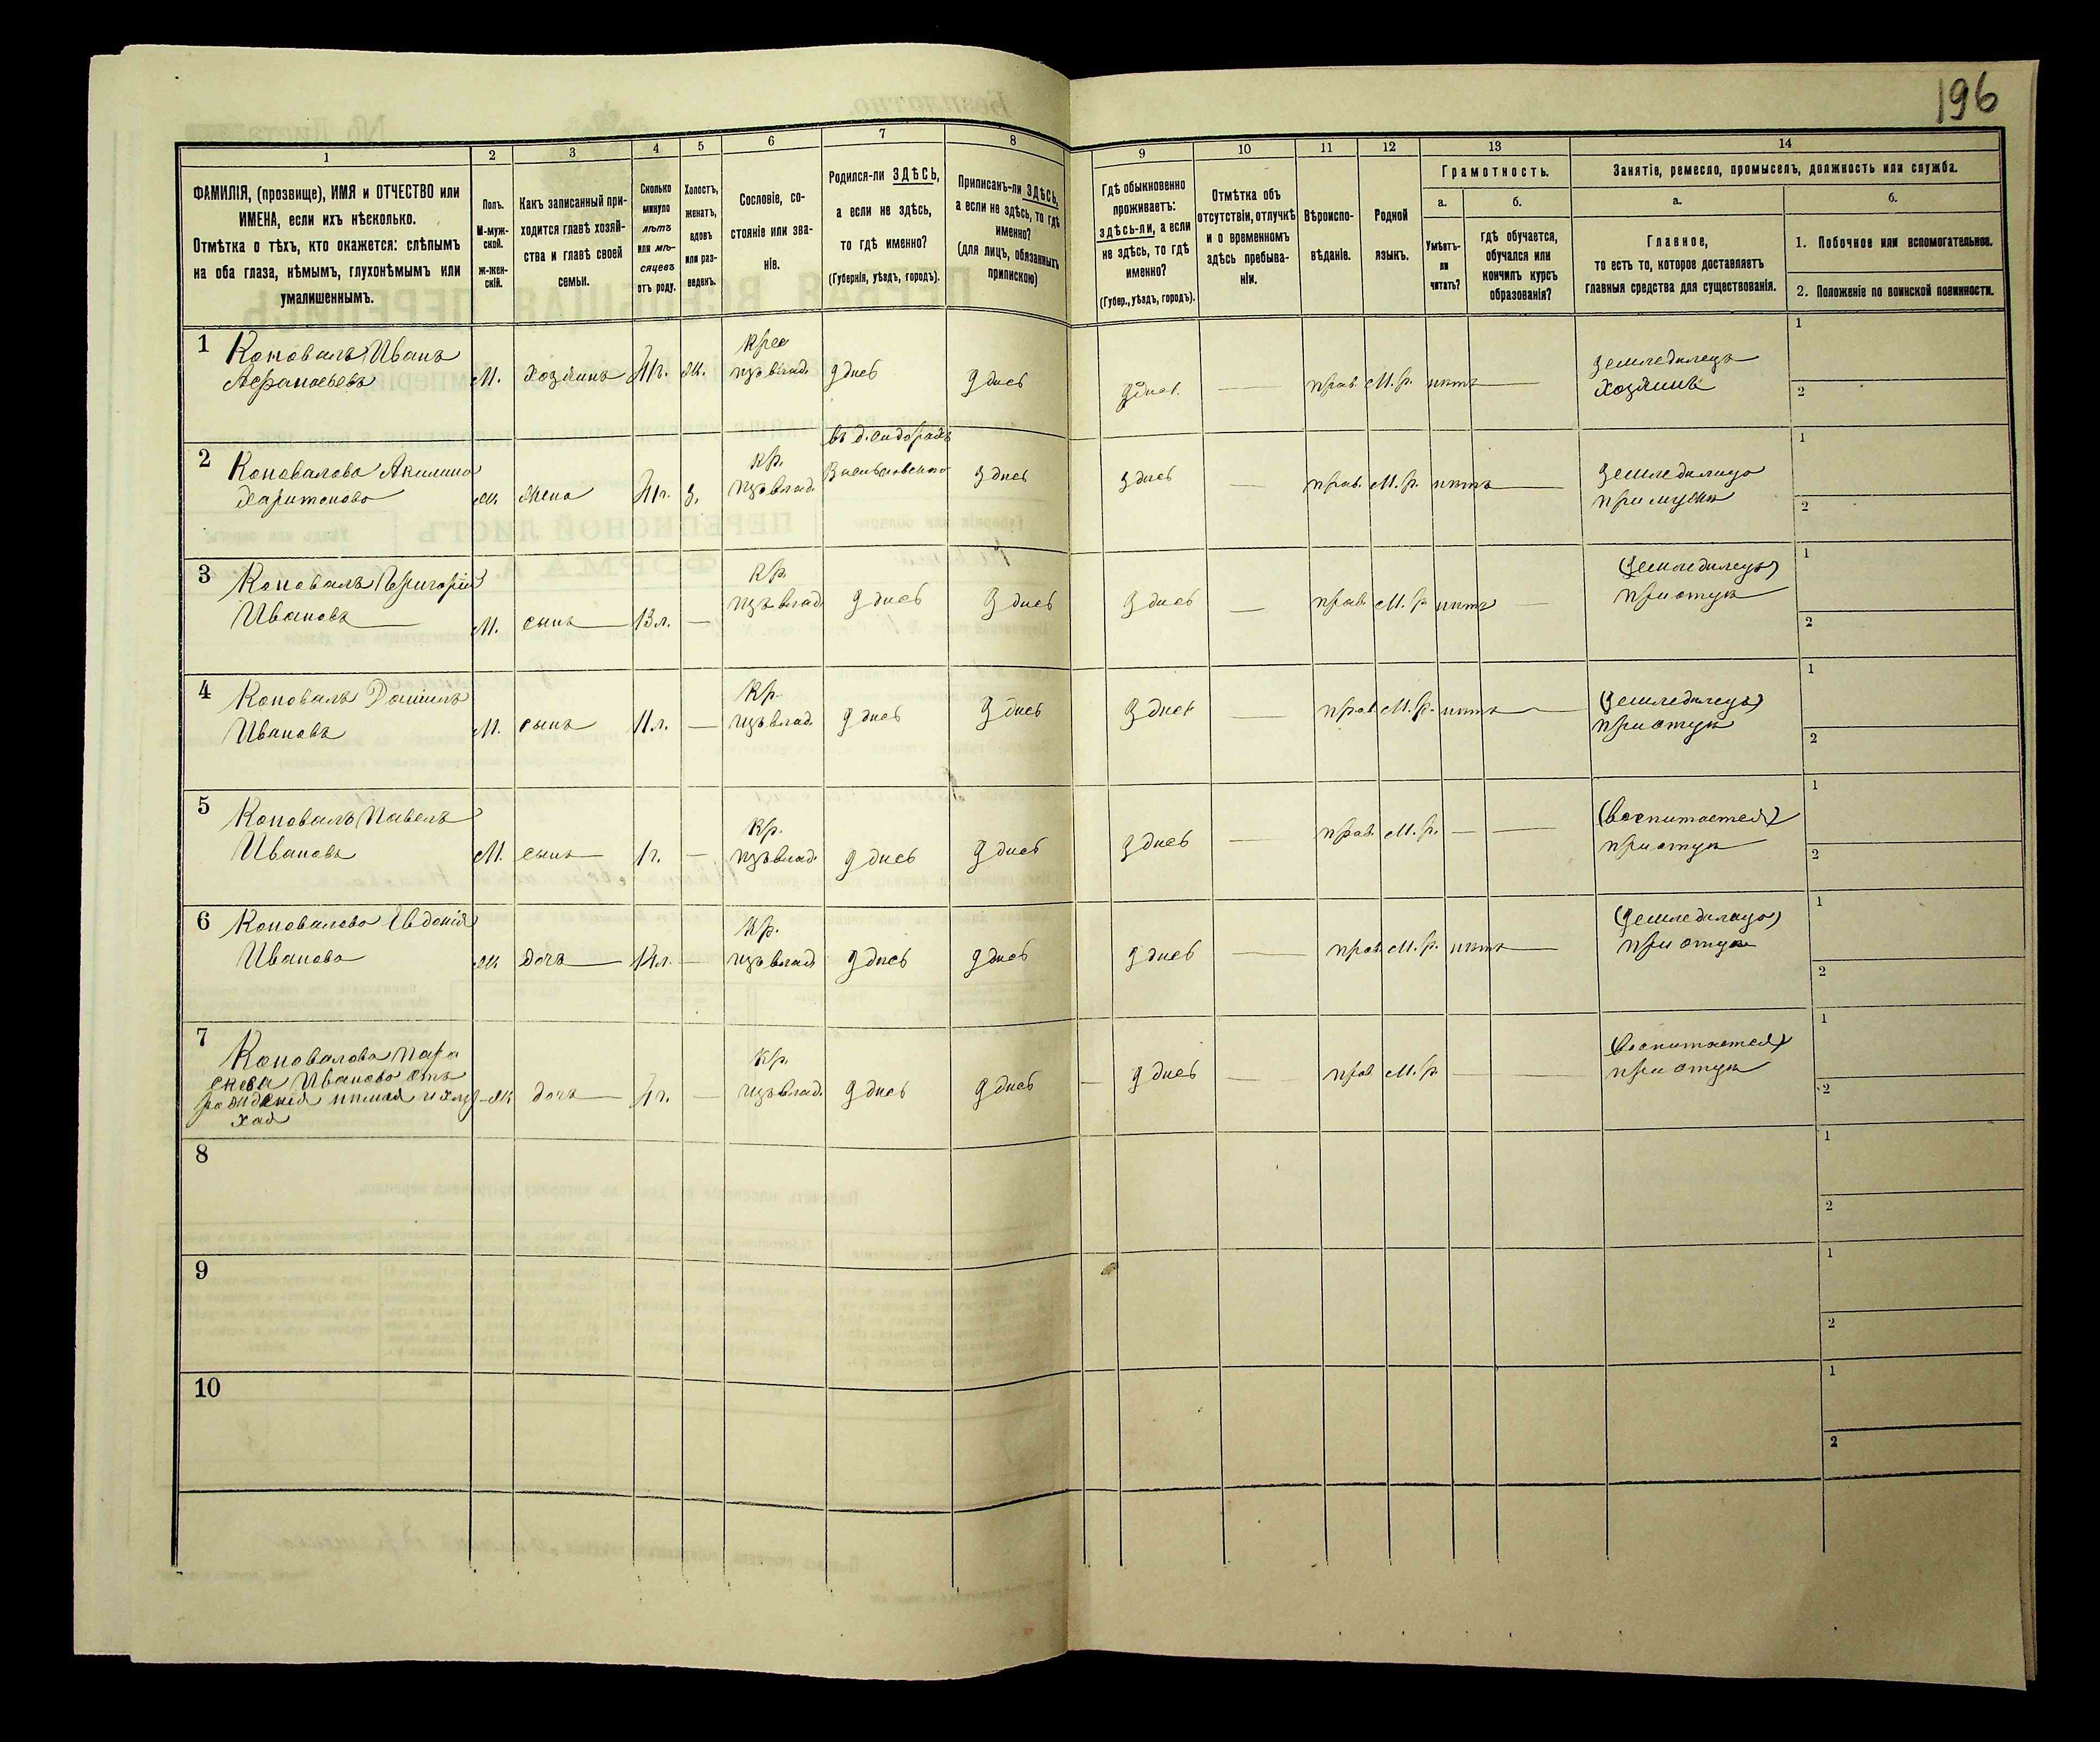 196
1
2
3
4
5
6
7
8
9
10
11
12
13
14
ФАМИЛІЯ, (прозвище), ИМЯ и ОТЧЕСТВО или
ИМЕНА, если ихъ нѣсколько.
Отмѣтка о тѣхъ, кто окажется: слѣпымъ
на оба глаза, нѣмымъ, глухонѣмымъ или
умалишеннымъ.
Полъ.
М-муж-
ской.
Ж-жен-
скій.
Какъ записанный при-
ходится главѣ хозяй-
ства и главѣ своей
семьи.
Сколько
минуло
лѣтъ
или мѣ-
сяцевъ
отъ роду.
Холостъ,
женатъ,
вдовъ
или раз-
веденъ.
Сословіе, со-
стояніе или зва-
ніе.
Родился-ли ЗДѢСЬ,
а если не здѣсь,
то гдѣ именно?
(Губернія, уѣздъ, городъ).
Приписанъ-ли ЗДѢСЬ,
а если не здѣсь, то гдѣ
именно?
(для лицъ, обязанныхъ
припискою)
Гдѣ обыкновенно
проживаетъ:
здѣсь-ли, а если
не здѣсь, то гдѣ
именно?
(Губер., уѣздъ, городъ).
Отмѣтка объ
отсутствіи, отлучкѣ
и о временномъ
здѣсь пребыва-
ніи.
Вѣроиспо-
вѣданіе.
Родной
языкъ.
Грамотность.
а.
Умѣетъ-
ли
читать?
б.
гдѣ обучается,
обучался или
кончилъ курсъ
образованія?
Занятіе, ремесло, промыселъ, должность или служба.
а.
Главное,
то есть то, которое доставляетъ
главныя средства для существованія.
б.
1. Побочное или вспомогательное.
2. Положеніе по воинской повинности.
1
Коновалъ Иванъ
Афанасьевъ
М.
хозяинъ
41г.
Крес
изъ влад.
здѣсь
здѣсь
здѣсь.
прав.
М.р.
нѣтъ
земледѣлецъ
хозяинъ
1
2
2
Коновалова Акилина
Харитонова
ж.
жена
41г.
з.
кр.
изъ влад.
здѣсь
здѣсь
прав.
М.р.
нѣтъ
земледѣлица
при мужѣ
1
2
3
Коновалъ Григорій
Ивановъ
М.
сынъ
13л.
Кр.
изъ влад.
здѣсь
здѣсь
здѣсь
прав.
М.р.
нѣтъ
(земледѣлецъ)
при отцѣ
1
2
4
Коновалъ Даніилъ
Ивановъ
М.
сынъ
11л.
Кр.
изъ влад.
здѣсь
здѣсь
здѣсь
прав.
М.р.
нѣтъ
(земледѣлецъ)
при отцѣ
1
2
5
Коновалъ Павелъ
Ивановъ
М.
сынъ
1г.
Кр.
изъ влад.
здѣсь
здѣсь
здѣсь
прав.
М.р.
(воспитается)
при отцѣ
1
2
6
Коновалова Евдокія
Иванова
ж.
дочь
14л.
Кр.
изъ влад.
здѣсь
здѣсь
здѣсь
прав.
М.р.
нѣтъ
(земледѣлица)
при отцѣ
1
2
7
Коновалова Пара
скева Иванова отъ
рожденія нѣмая и глу
хая
ж.
дочь
4г.
Кр.
изъ влад.
здѣсь
здѣсь
здѣсь
прав
М.р.
(воспитается)
при отцѣ
1
2
8
1
2
9
1
2
10
1
2